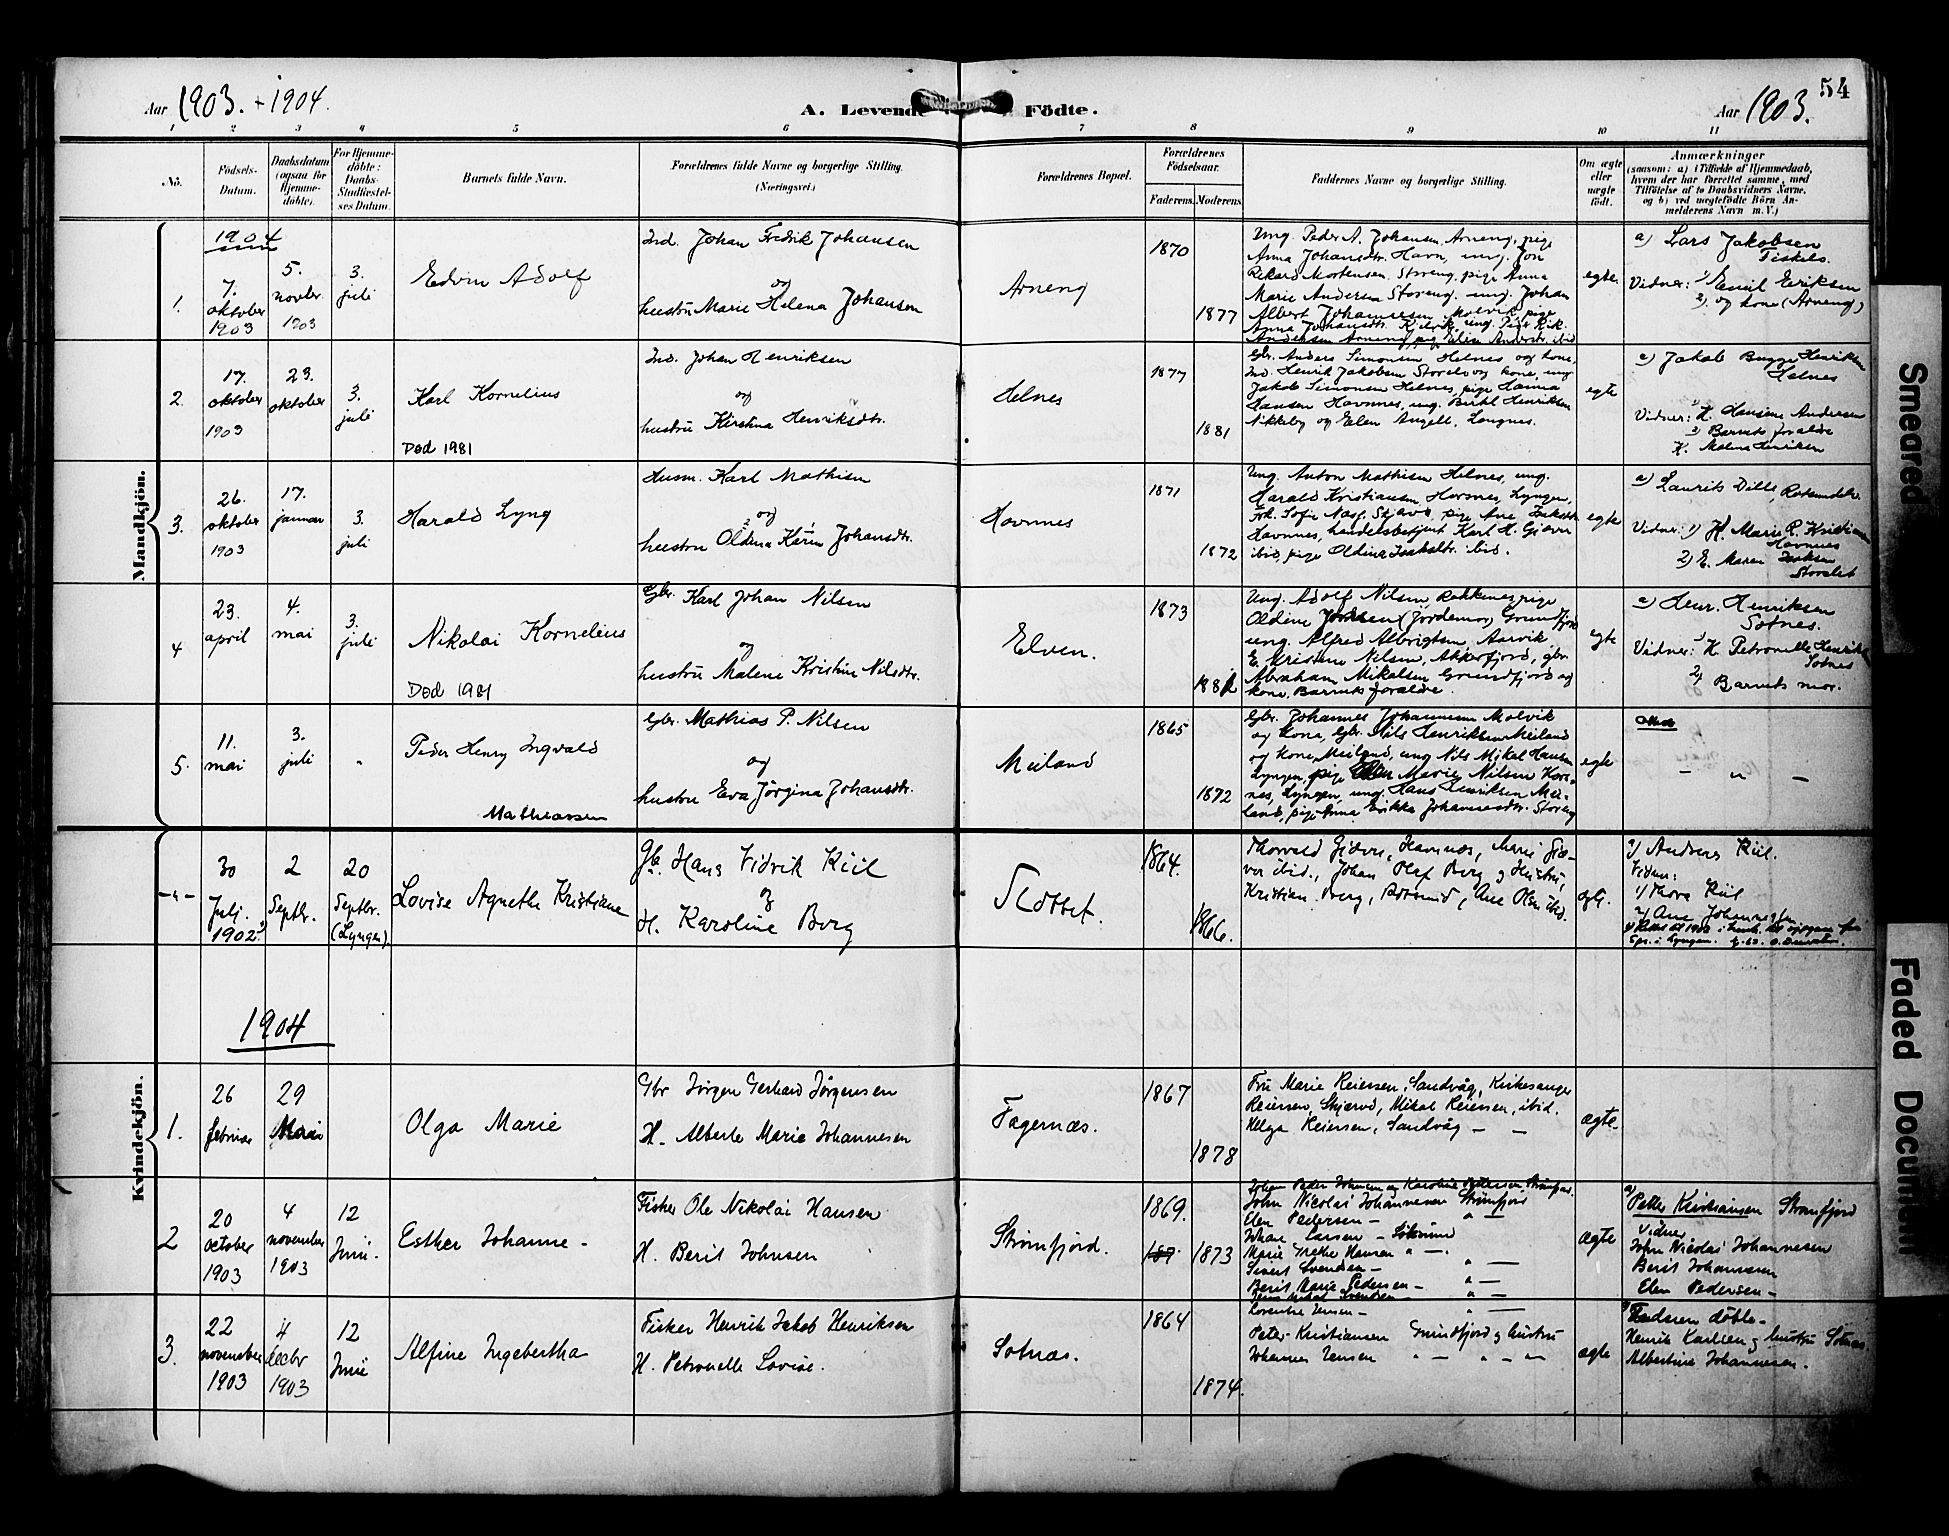 Aar 1903. + 1904.
A. Levende Födte.
Aar 1903.
54
1 2 3 4 5 6 7 8 9 10 11
No.
Födsels-
Datum.
Daabsdatum
(ogsaa for
Hjemme-
döbte).
For Hjemme-
döbte:
Daabs-
Stadfæstel-
ses Datum.
Barnets fulde Navn.
Forældrenes fulde Navne og borgerlige Stilling.
(Næringsvei.)
Forældrenes Bopæl.
Forældrenes
Födselsaar.
Faderens. Moderens.
Faddernes Navne og borgerlige Stilling.
Om ægte
eller
uægte
födt.
Anmærkninger
(saasom: a) i Tilfælde af Hjemmedaab,
hvem der har forrettet samme, med
Tilföielse af to Daabsvidners Navne,
og b) ved uægtefödte Börn An-
melderens Navn m. V.)
Mandkjön.
1904
1.
7.
oktober
1903
5.
novbr.
1903
3.
juli
Edvin Adolf
Ind. Johan Fredrik Johansen
og
hustru Marie Helena Johansen
Arneng
1870
1877
Ung. Peder A. Johansen, Arneng, pige
Anna Johansdtr. Havn, ung. Jon
Rikard Mortensen, Storeng, pige Anna
Marie Andersen Storeng, ung. Johan
Albert Johannessen, Molvik, pige
Anna Johansdtr.
egte
a) Lars Jakobsen
Fiskels.
Vidner: 1) Emil Eriksen
2) og kone (Arneng)
2.
17.
oktober
1903
23.
oktober
3.
juli
Karl Kornelius
Død 1981
Ind. Johan Henriksen
og
hustru Kirstina Henriksdtr.
Helnes
1877
1881
Gbr. Anders Simonsen Helnes og kone,
Ind. Henrik Jakobsen Storels og kone, ung.
Jakob Simonsen Helnes, pige Hanna
Hansen Havnnes, ung. Bertil Henriksen
Nikkeby og Elen Angell, Langnes.
egte
a) Jakob Bugge Henriksen
Helnes
Vidner: 1) H. Hansine Andersen
2) Barnets forældre
H. Malena Henriksen
3.
26.
oktober
1903
17.
januar
3.
juli
Harald Lyng
Husm. Karl Mathisen
og
hustru Oldina Karin Johansdtr.
Havnnes
1871
1872
Ung. Anton Mathisen Helnes, ung.
Harald Kristiansen Havnnes, Lyngen,
Frk. Sofie Næss, Skjærvø, pige Ane Isaksdtr.
Havnnes, handelsbetjent Karl H. Giæver
ibid, pige Oldine Isaksdtr. ibid.
egte
a) Laurits Dille, Rotsundelv.
Vidner: 1) H. Marie R. Kristiansen
Havnnes
2) E. Maren Isaksen
Storslet
4
23.
april
4.
mai
3.
juli
Nikolai Kornelius
Død 1981
Gbr. Karl Johan Nilsen
og
hustru Malene Kristine Nilsdtr.
Elven.
1873
1882
Ung. Adolf Nilsen Rakkenes, pige
Oldine Jensen (Jordemor) Grunfjord
ung. Alfred Albrigtsen, Aarvik
E. Kristine Nilsen, Akkarfjord, gbr.
Abraham Mikalsen Grundfjord og
kone, Barnets forældre.
egte
a) Henr. Henriksen
Sotnes.
Vidner: 1) H. Petronelle Henriksen
Sotnes
2) Barnets mor.
5.
11.
mai
3.
juli
"
Peder Henry Ingvald
Mathiassen
Gbr. Mathias P. Nilsen
og
hustru Eva Jørgina Johansdtr.
Meiland
1865
1872
Gbr. Johannes Johannessen Molvik
og kone, Gbr. Nils Henriksen Meiland
og kone, Meiland, ung. Nils Mikal Hansen
Lyngen, pige Marie Nilsen Kors-
nes, Lyngen, ung. Hans Henriksen Mei-
land, pige Anna Erikka Johannesdtr. Storeng
egte
– " –
Kvindekjön.
30
Juli.
1902?
2
Septbr.
20
Septbr.
(Lyngen).
Lovise Agnethe Kristiane
Gb. Hans Vidrik Kiil
og
H. Karoline Berg
Slottet.
1864.
1866.
Thorvald Giæver, Havnnæs, Marie Giæ-
ver ibid., Johan Olaf Berg og Hustru,
Kristian Berg, Rotsund, Ane Olsen ibid.
egte.
a) Andreas Kiil.
Vidner:
1) Thora Kiil
2) Ane Johannessen
1904
1.
26
februar
29
Marts
Olga Marie
Gbr Jörgen Gerhard Jörgensen
H. Alberte Marie Johannesen
Fagernæs.
1867
1878
Fru Marie Reiersen, Sandvåg, Kirkesanger
Reiersen, Skjærvö, Mikal Reiersen, ibid.
Helga Reiersen, Sandvåg – –
ægte
2
20
october
1903
4
november
1903
12
Juni
Esther Johanne –
Fisker Ole Nikolai Hansen
H. Berit Johnsen
Strömfjord.
1869.
187
1873
John Nicolai Johannesen Strömfjord
Elen Pedersen – " –
Johan Larsen – Sörstrand
Marie Grethe Hansen " –
Sivert Svendsen – " –
Berit Marie Pedersen – " –
ægte
a) Petter Kristiansen Strömfjord
Vidner
John Nicolai Johannesen
Berit Johannesen
Elen Pedersen –
3.
22
november
1903
4
decbr
1903
12
Juni
Alfine Ingebertha
Fisker Henrik Jakob Henriksen
H. Petronelle Lovise.
Sotnæs.
1864
1874.
Lorentse Jensen – " –
Peter Kristiansen Grundfjord og hustru
Johannes Jensen " – " – " –
ægte
Faderen döbte –
Henrik Karlsen og hustru Sotnæs
Albertine Johannesen.
Smeared
Faded Document